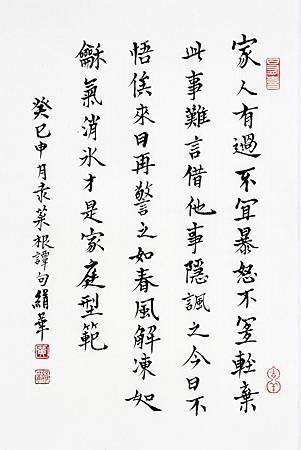 家人有過不冝暴怒不冝輕棄
此事難言借他事隱諷之今日不
悟俟來日再警之如春風解凍如
龢氣消氷才是家庭型範
癸巳申月录菜根譚句絹華